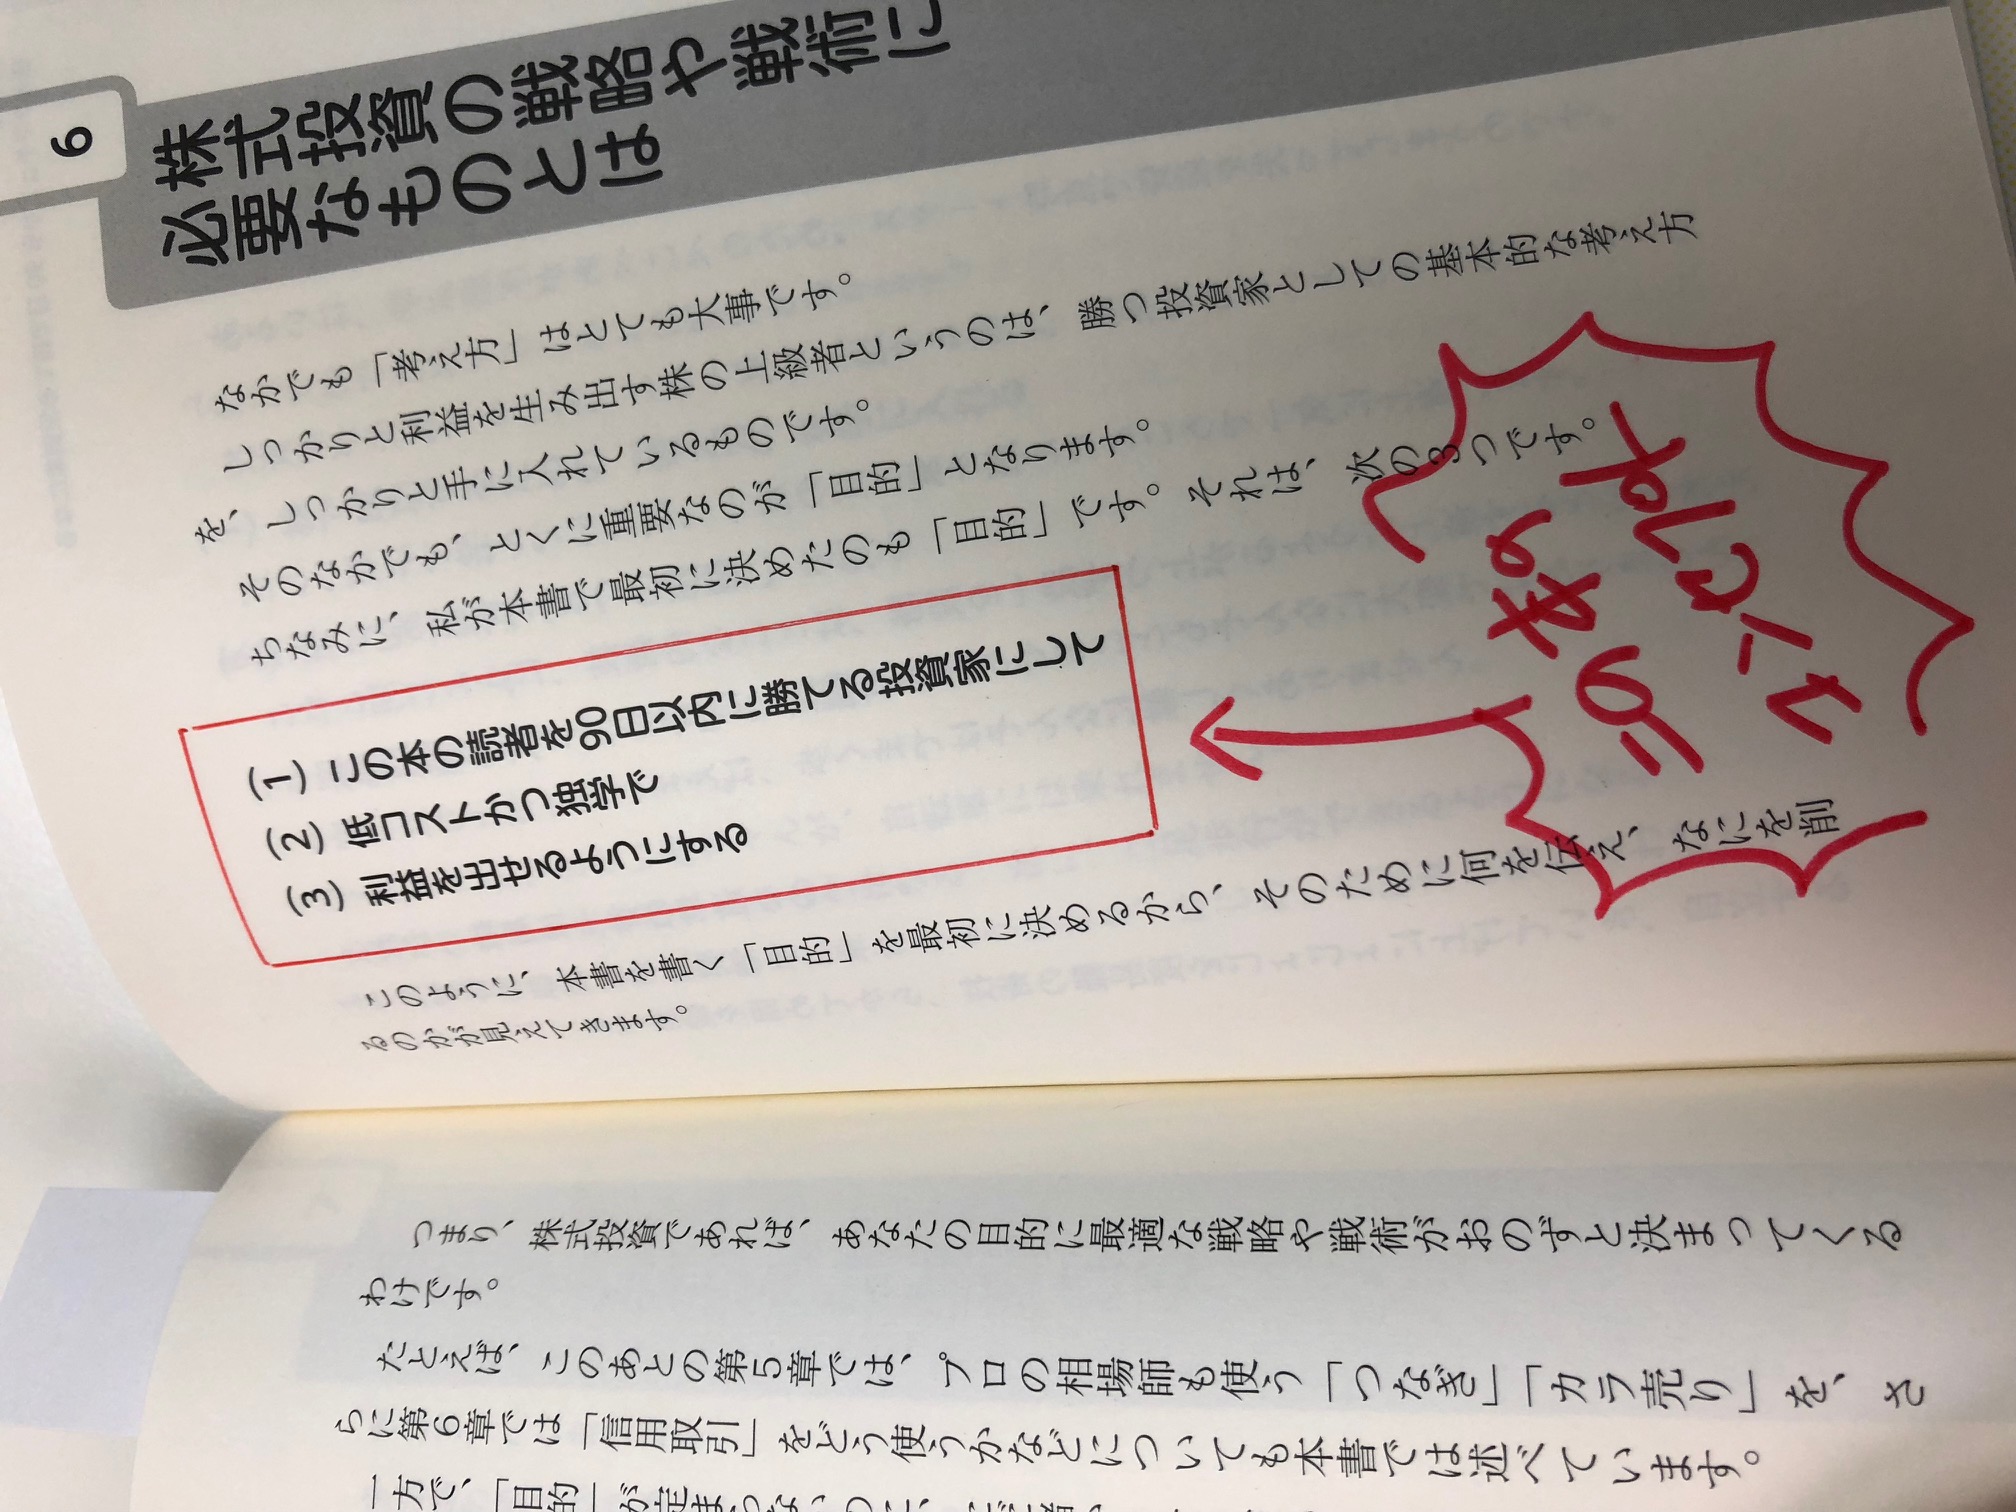 6
株式投資の戦略や戦術に
必要なものとは
なかでも「考え方」はとても大事です。
しっかりと利益を生み出す株の上級者というのは、勝つ投資家としての基本的な考え方
を、しっかりと手に入れているものです。
そのなかでも、とくに重要なのが「目的」となります。
ちなみに、私が本書で最初に決めたのも「目的」です。それは、次の3つです。
（1）この本の読者を90日以内に勝てる投資家にして
（2）低コストかつ独学で
（3）利益を出せるようにする
このように、本書を書く「目的」を最初に決めるから、そのために何を伝え、なにを削
るのかが見えてきます。
つまり、株式投資であれば、あなたの目的に最適な戦略や戦術がおのずと決まってくる
わけです。
たとえば、このあとの第5章では、プロの相場師も使う「つなぎ」「カラ売り」を、さ
らに第6章では「信用取引」をどう使うかなどについても本書では述べています。
一方で、「目的」が定まらないのに、